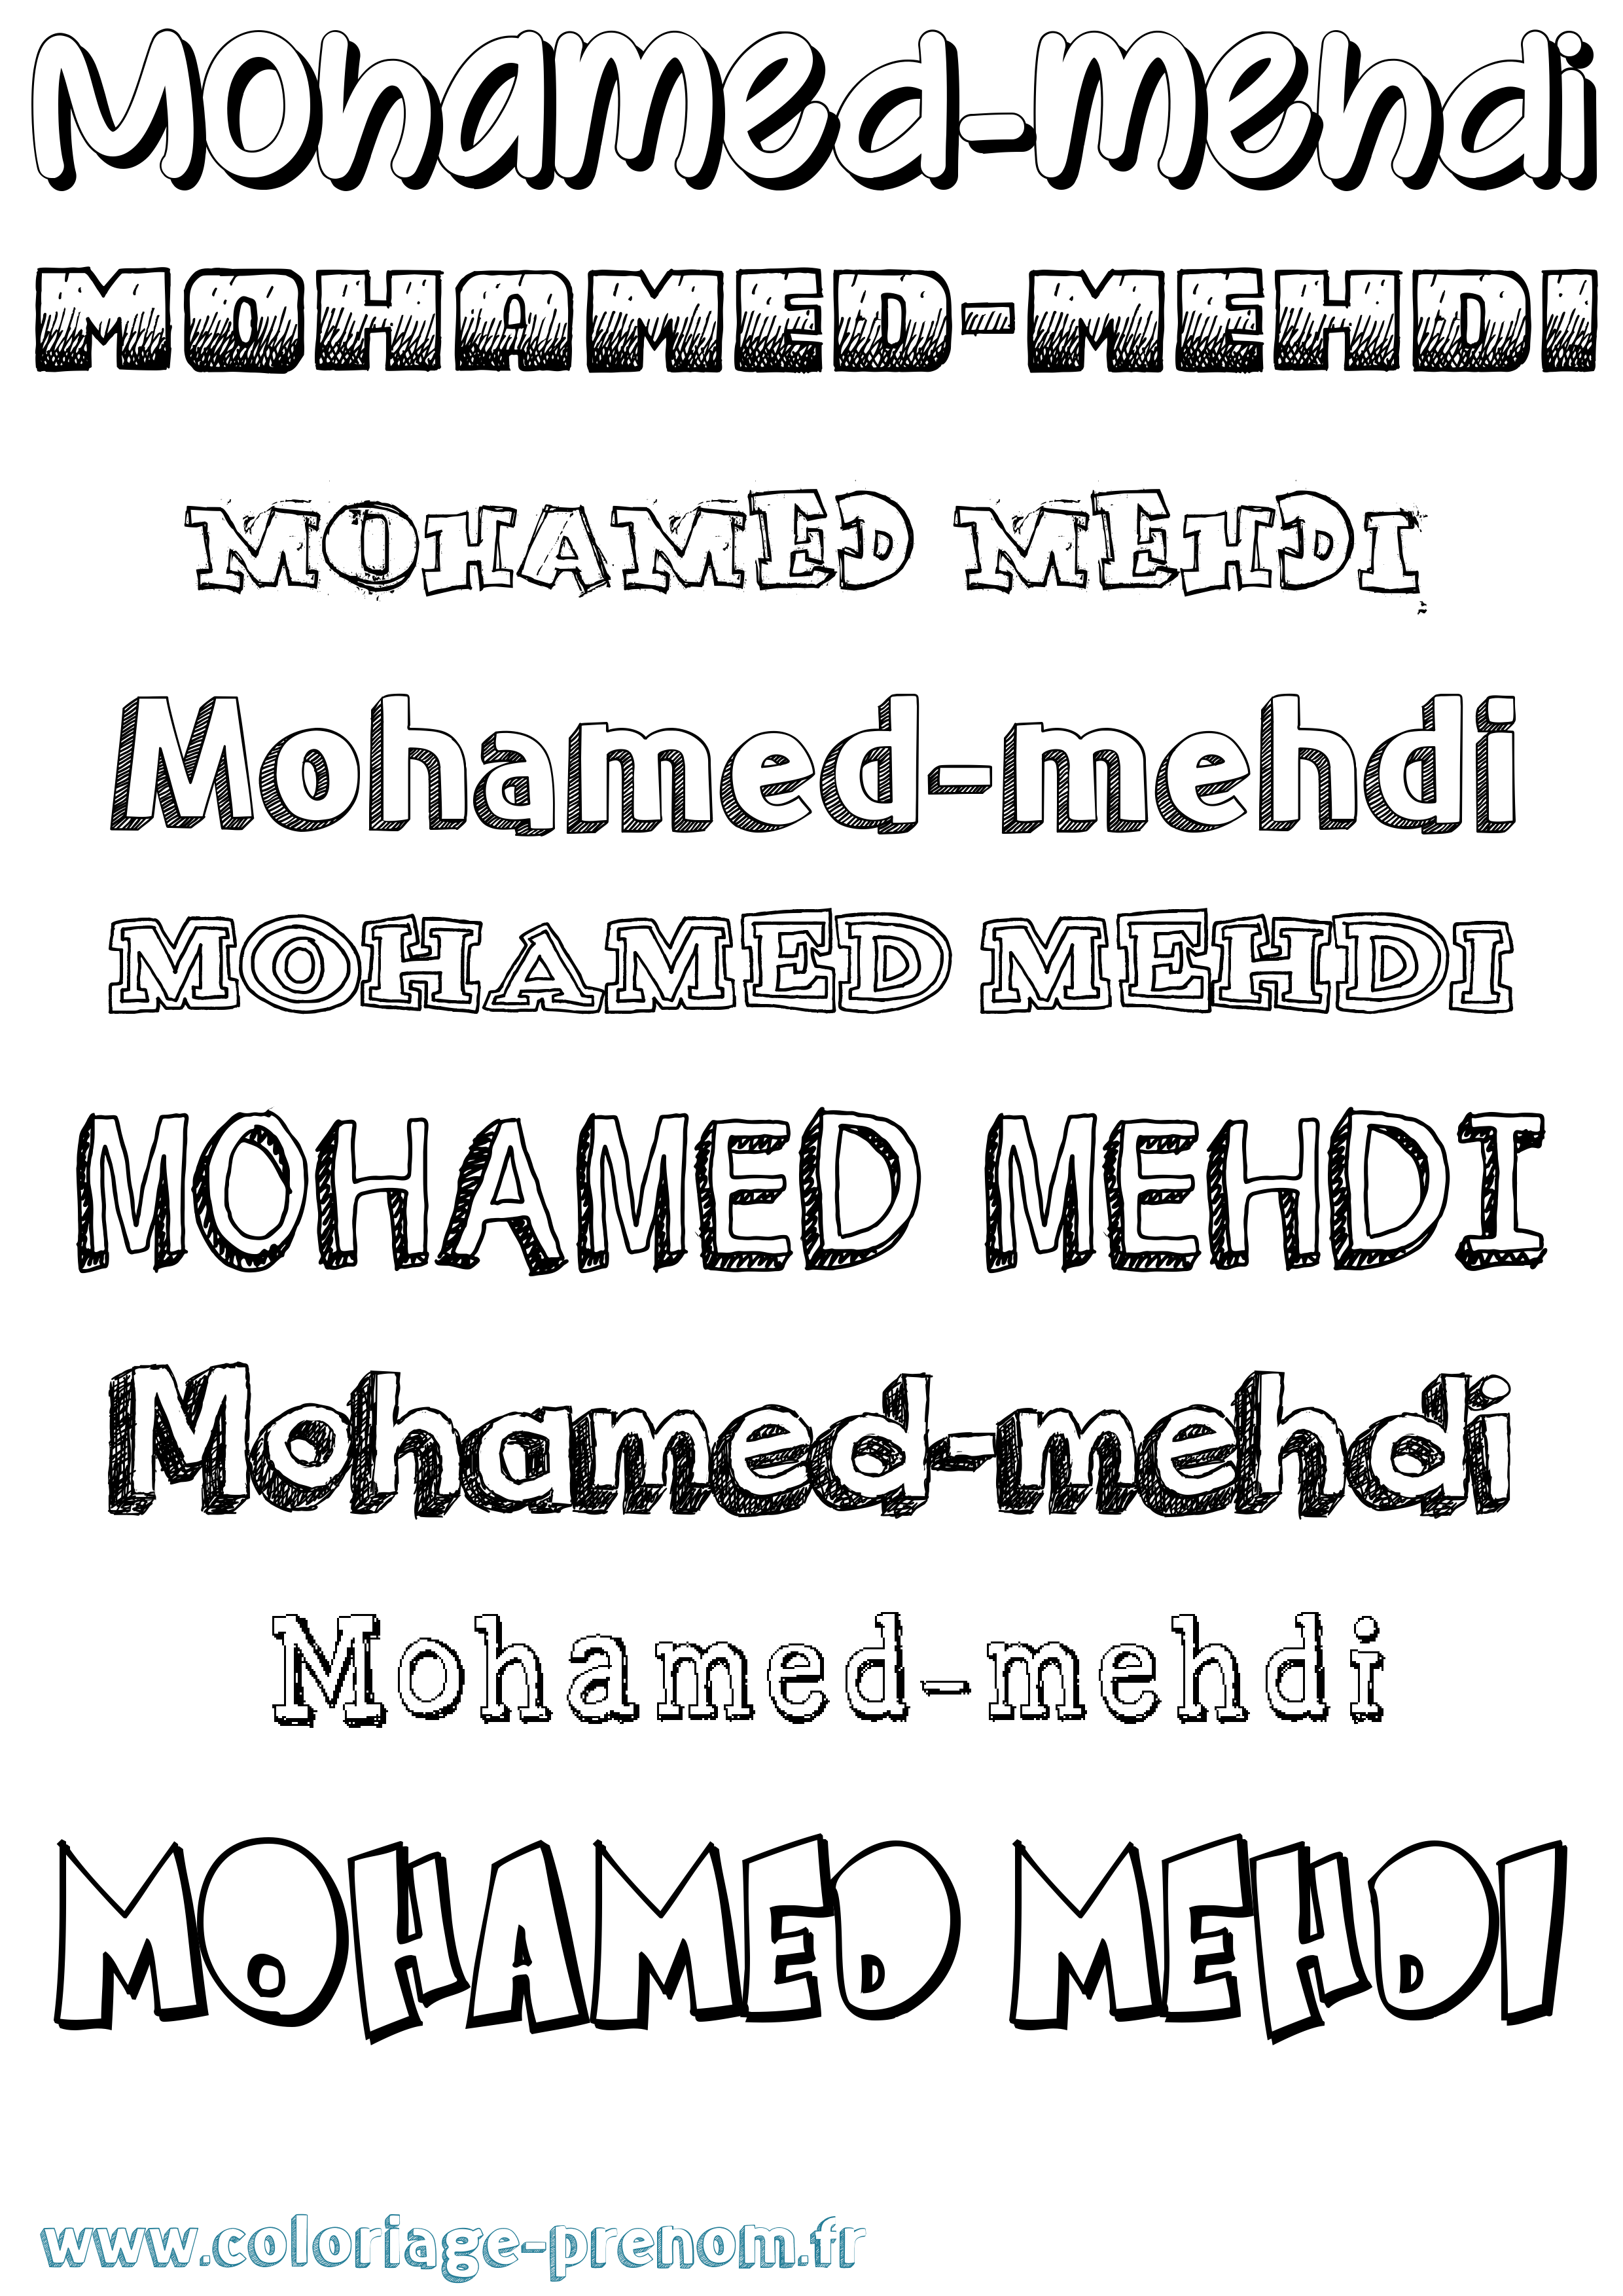 Mohamed-mehdi
MOHAMED-MEHDI
MOHAMED MEHDI
Mohamed-mehdi
MOHAMED MEHDI
MOHAMED MEHDI
Mohamed-mehdi
Mohamed-mehdi
MOHAMED MEHDI
www.coloriage-prenom.fr